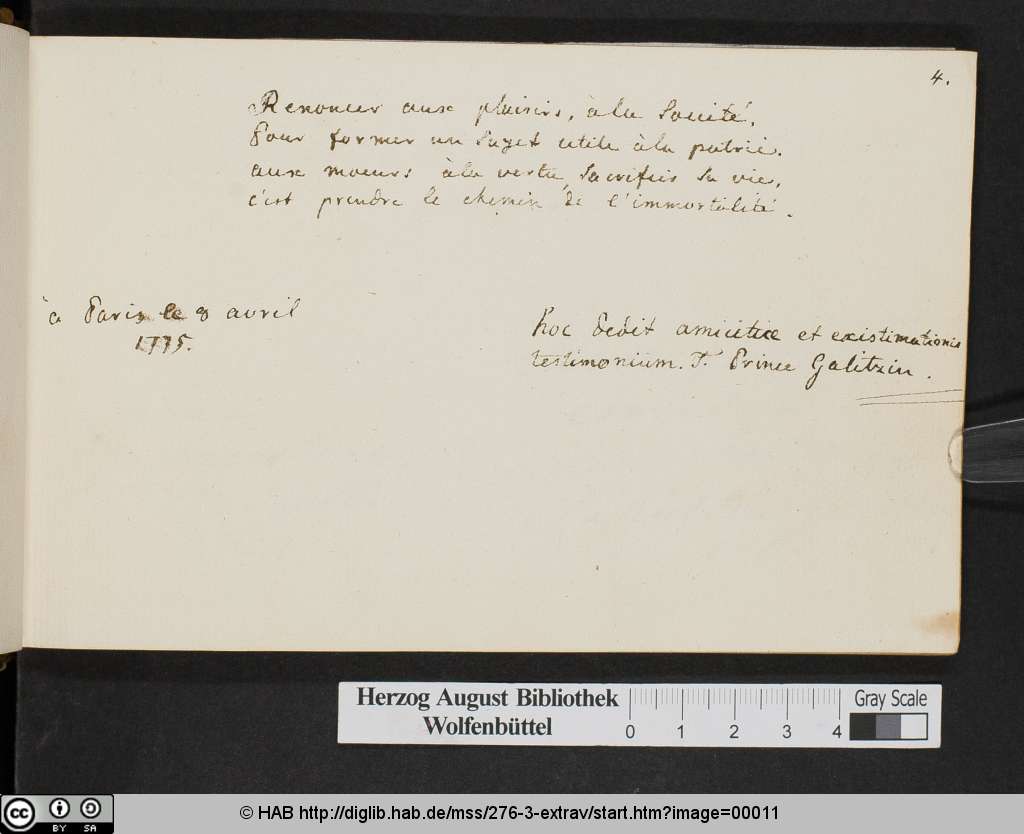 4.
Renoncer aux plaisirs, à la Société,
Pour former un Sujet utile à la patrie.
aux moeurs à la vertu, Sacrifier Sa vie,
c'est prendre le chemin de l'immortalité.
à Paris le 8 avril
1775.
hoc dedit amicitiæ et existimationis
testimonium. T. Prince Galitzin.
Herzog August Bibliothek
Wolfenbüttel
0 1 2 3 4
Gray Scale
cc BY SA
© HAB http://diglib.hab.de/mss/276-3-extrav/start.htm?image=00011